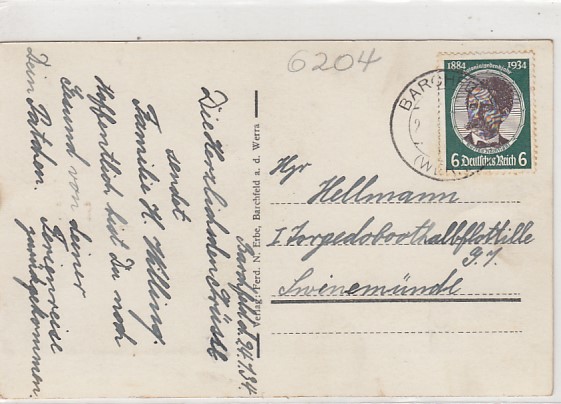 6204
Barchfeld 24.7.34.
Die herzlichsten Grüße
sendet
Familie H. Willing.
Hoffentlich bist Du noch
Gesund von deiner
Ferienreise
zurückgekommen.
Dein Patchen.
Verlag: Ferd. N. Erbe, Barchfeld a. d. Werra
BARCH
(WE
1884 1934
6 Deutsches Reich 6
Hellmann
I Torpedoboothalbflottille
Swinemünde